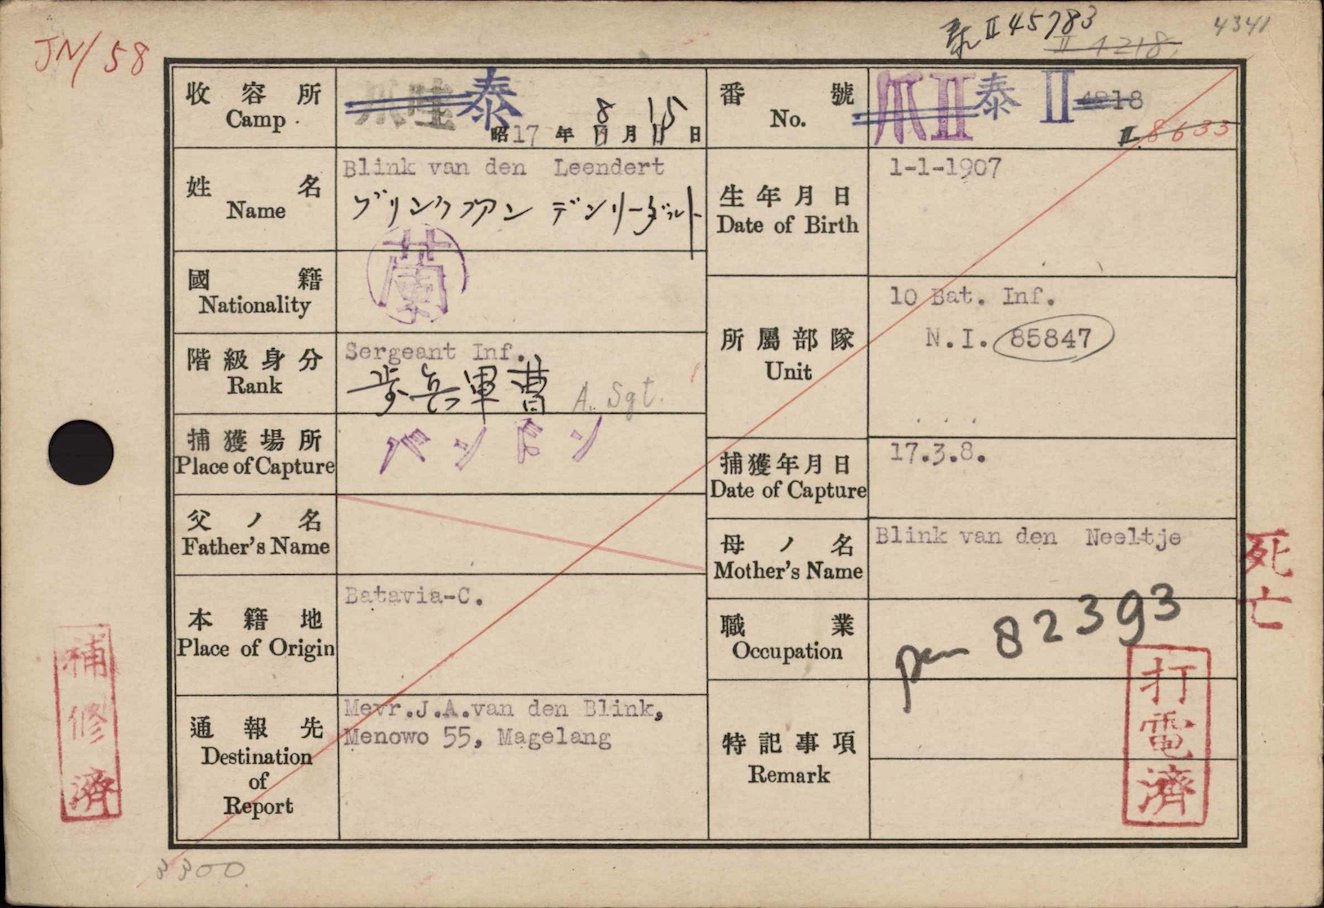 JN/58
泰II 45783
II 4218.
4341
收容所
Camp
爪哇 泰
昭17年8月15日
番號
No.
爪II 泰 II 4218
II 8633
姓名
Name
Blink van den Leendert
ブリンクフアン デンリーダルト
生年月日
Date of Birth
1-1-1907
國籍
Nationality
蘭
所屬部隊
Unit
10 Bat. Inf.
N.I. 85847
階級身分
Rank
Sergeant Inf.
歩兵軍曹 A. Sgt.
捕獲場所
Place of Capture
バンドン
捕獲年月日
Date of Capture
17.3.8.
父ノ名
Father's Name
母ノ名
Mother's Name
Blink van den Neeltje
本籍地
Place of Origin
Batavia-C.
職業
Occupation
82393
通報先
Destination
of
Report
Mevr.J.A.van den Blink,
Menowo 55, Magelang
特記事項
Remark
死亡
打電濟
補修濟
3300